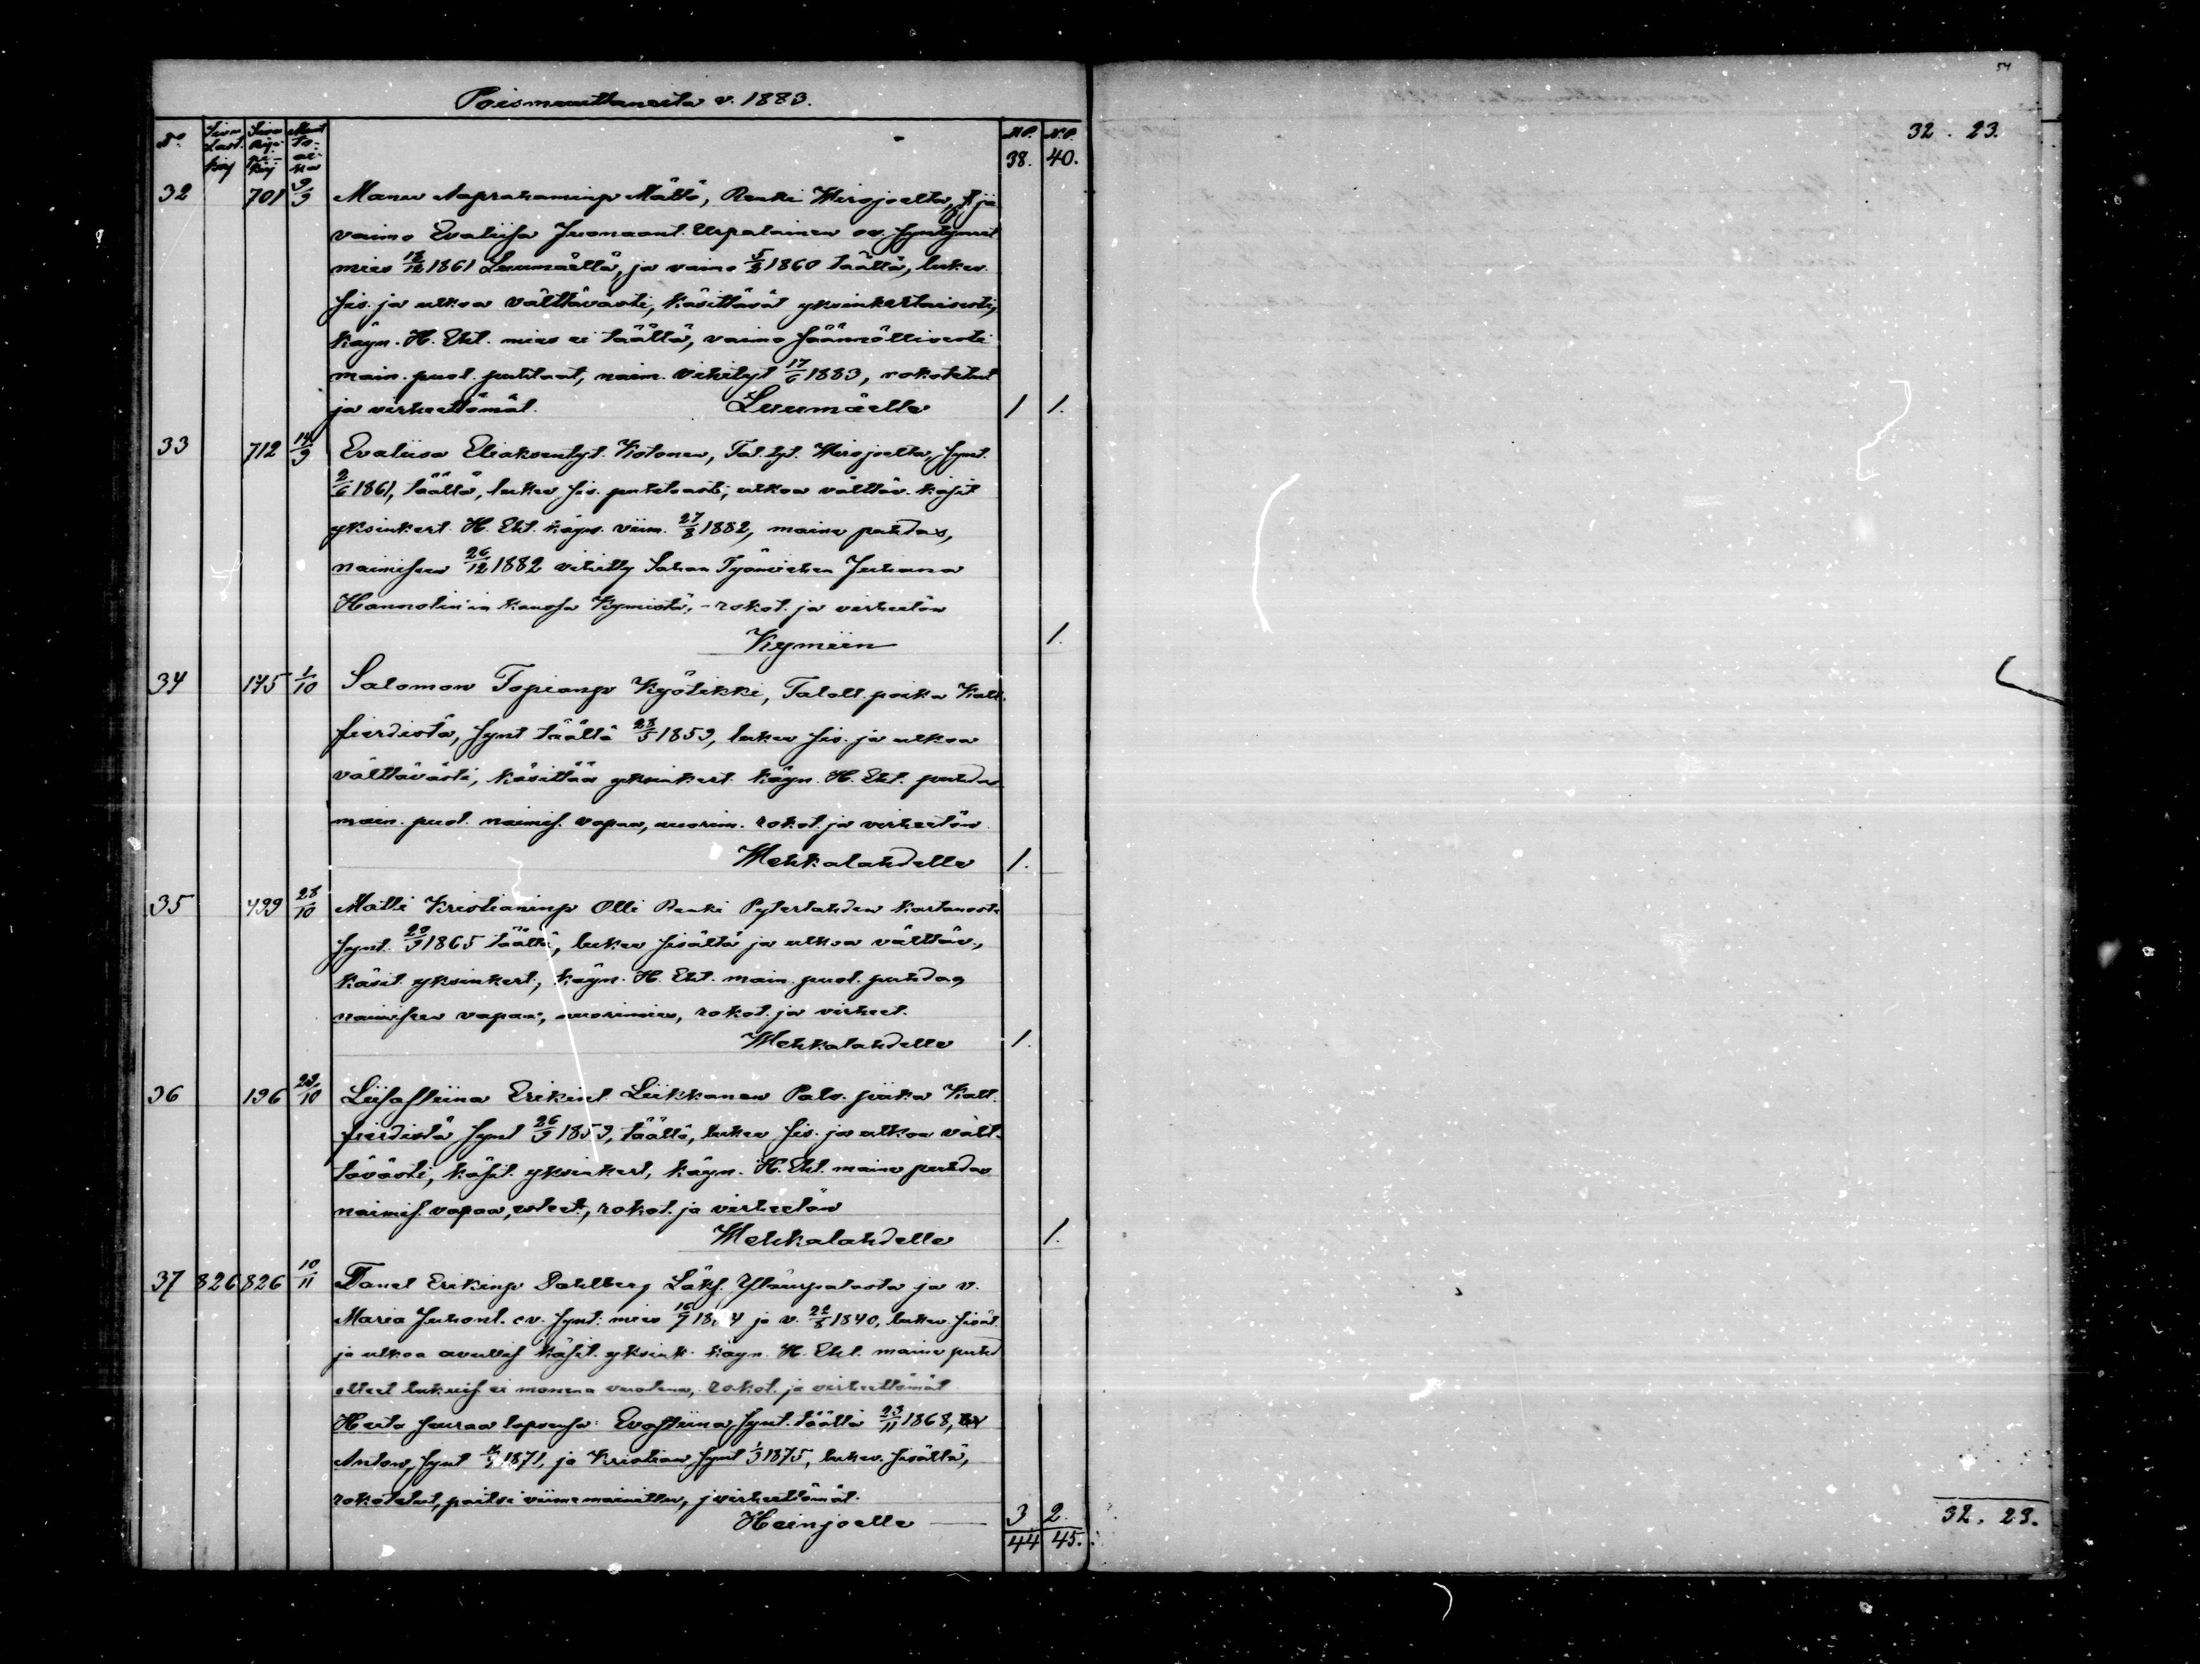 Poismuuttaneita v. 1883.
No. Sivu Last. kirj. Sivu Ripi- pi- kirj Muut to- ai- ka M.P. N.P.
38. 40.
32 701 9/9 Manu Aaprahaminp Mättö, Renki Wirojoelta, ja
vaimo Evaliisa Juonaant. Urpalainen ov. syntyneet
mies 12/12 1861 Luumäellä, ja vaimo 5/2 1860 täällä, lukev.
sis. ja ulkoa välttävästi, käsittävät yksinkertaisesti,
käyn. H. Eht. mies ei täällä, vaimo säännöllisesti
main. puol. puhtaat, naim. vihityt 17/6 1883, rokotetut
ja virheettömät. Luumäelle 1 1.
33 712 14/9 Evaliisa Eliaksentyt. Kotonen, Tal. tyt. Wirojoelta, synt.
2/6 1861, täällä, lukee sis. puhtaasti, ulkoa välttäv. käsit
yksinkert. H. Eht. käyn. viim. 27/8 1882, maine puhdas,
naimiseen 26/12 1882 vihitty Sahan Työmiehen Juhana
Hannolin'in kanssa Kymistä, - rokot. ja virheetön
Kymiin 1.
34 175 1/10 Salomon Topianp Kyötikki, Taloll. poika Kall-
fierdistä, synt täällä 28/5 1859, lukee sis. ja ulkoa
välttävästi, käsittää yksinkert. käyn. H. Eht. puhdas
main. puol. naimis. vapaa, nuorim. rokot. ja virheetön.
Wehkalahdelle 1.
35 499 28/10 Matti Kristianinp Olli Renki Pyterlahden kartanosta
synt. 20/9 1865 täällä, lukee sisältä ja ulkoa välttäv.,
käsit. yksinkert., käyn. H. Eht. main. puol. puhdas,
naimiseen vapaa, nuorimies, rokot. ja virheet.
Wehkalahdelle 1.
36 196 29/10 Liisastiina Erikint. Liikkanen Palv. piika Kall-
fierdistä synt 26/9 1859, täällä, lukee sis. ja ulkoa vält-
tävästi, käsit. yksinkert, käyn. H. Eht. maine puhdas
naimis. vapaa, esteet., rokot. ja virheetön
Wehkalahdelle 1.
37 826 826 10/11 Tanel Erikinp Dahlberg Läks. Yläurpalasta ja v.
Maria Juhont. ov. synt: mies ja v. 22/8 1840, lukev. sisät.
ja ulkoa avullis käsit. yksink. käyn. H. Eht. maine puhd
olleet lukuis ei monena vuotena, rokot. ja virheettömät
Heitä seuraa lapsensa: Evastiina, synt. täällä 23/11 1868,
Anton, synt 1871, ja Kristian, synt 1/3 1875, lukev. sisältä,
rokotetut, paitsi viimemainittu, ja virheettömät.
Heinjoelle 3 2.
44 45.
54
32. 23.
32. 23.